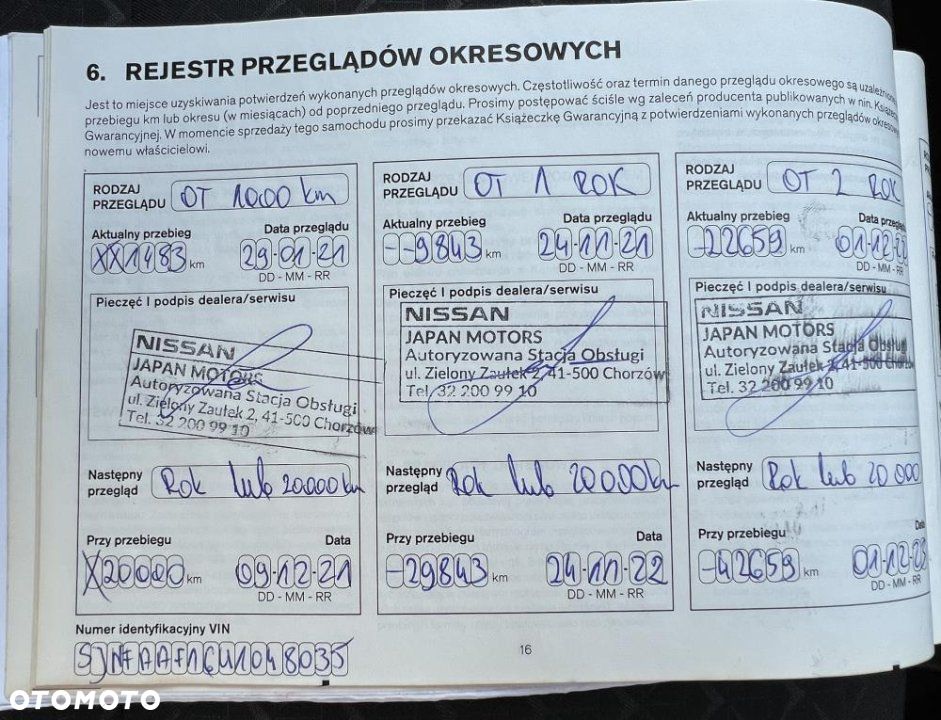 6. REJESTR PRZEGLĄDÓW OKRESOWYCH
Jest to miejsce uzyskiwania potwierdzeń wykonanych przeglądów okresowych. Częstotliwość oraz termin danego przeglądu okresowego są uzależnione
przebiegu km lub okresu (w miesiącach) od poprzedniego przeglądu. Prosimy postępować ściśle wg zaleceń producenta publikowanych w nin. Książce
Gwarancyjnej. W momencie sprzedaży tego samochodu prosimy przekazać Książeczkę Gwarancyjną z potwierdzeniami wykonanych przeglądów okresow
nowemu właścicielowi.
RODZAJ
PRZEGLĄDU OT 1000 km
Aktualny przebieg Data przeglądu
XX1483 km 29-01-21
DD - MM - RR
Pieczęć I podpis dealera/serwisu
NISSAN
JAPAN MOTORS
Autoryzowana Stacja Obsługi
ul. Zielony Zaułek 2, 41-500 Chorzów
Tel. 32 200 99 10
Następny
przegląd Rok lub 20.000 km
Przy przebiegu Data
X20000 km 09-12-21
DD - MM - RR
RODZAJ
PRZEGLĄDU OT 1 ROK
Aktualny przebieg Data przeglądu
--9843 km 24-11-21
DD - MM - RR
Pieczęć I podpis dealera/serwisu
NISSAN
JAPAN MOTORS
Autoryzowana Stacja Obsługi
ul. Zielony Zaułek 2, 41-500 Chorzów
Tel. 32 200 99 10
Następny
przegląd Rok lub 20.000 km
Przy przebiegu Data
-29843 km 24-11-22
DD - MM - RR
RODZAJ
PRZEGLĄDU OT 2 ROK
Aktualny przebieg Data przeglądu
-22659 km 01-12-22
DD - MM - RR
Pieczęć I podpis dealera/serwisu
NISSAN
JAPAN MOTORS
Autoryzowana Stacja Obsługi
ul. Zielony Zaułek 2, 41-500 Chorzów
Tel. 32 200 99 10
Następny
przegląd Rok lub 20.000
Przy przebiegu Data
-42659 km 01-12-23
DD - MM - RR
Numer identyfikacyjny VIN
SJNFAAF16U1048035
16
OTOMOTO